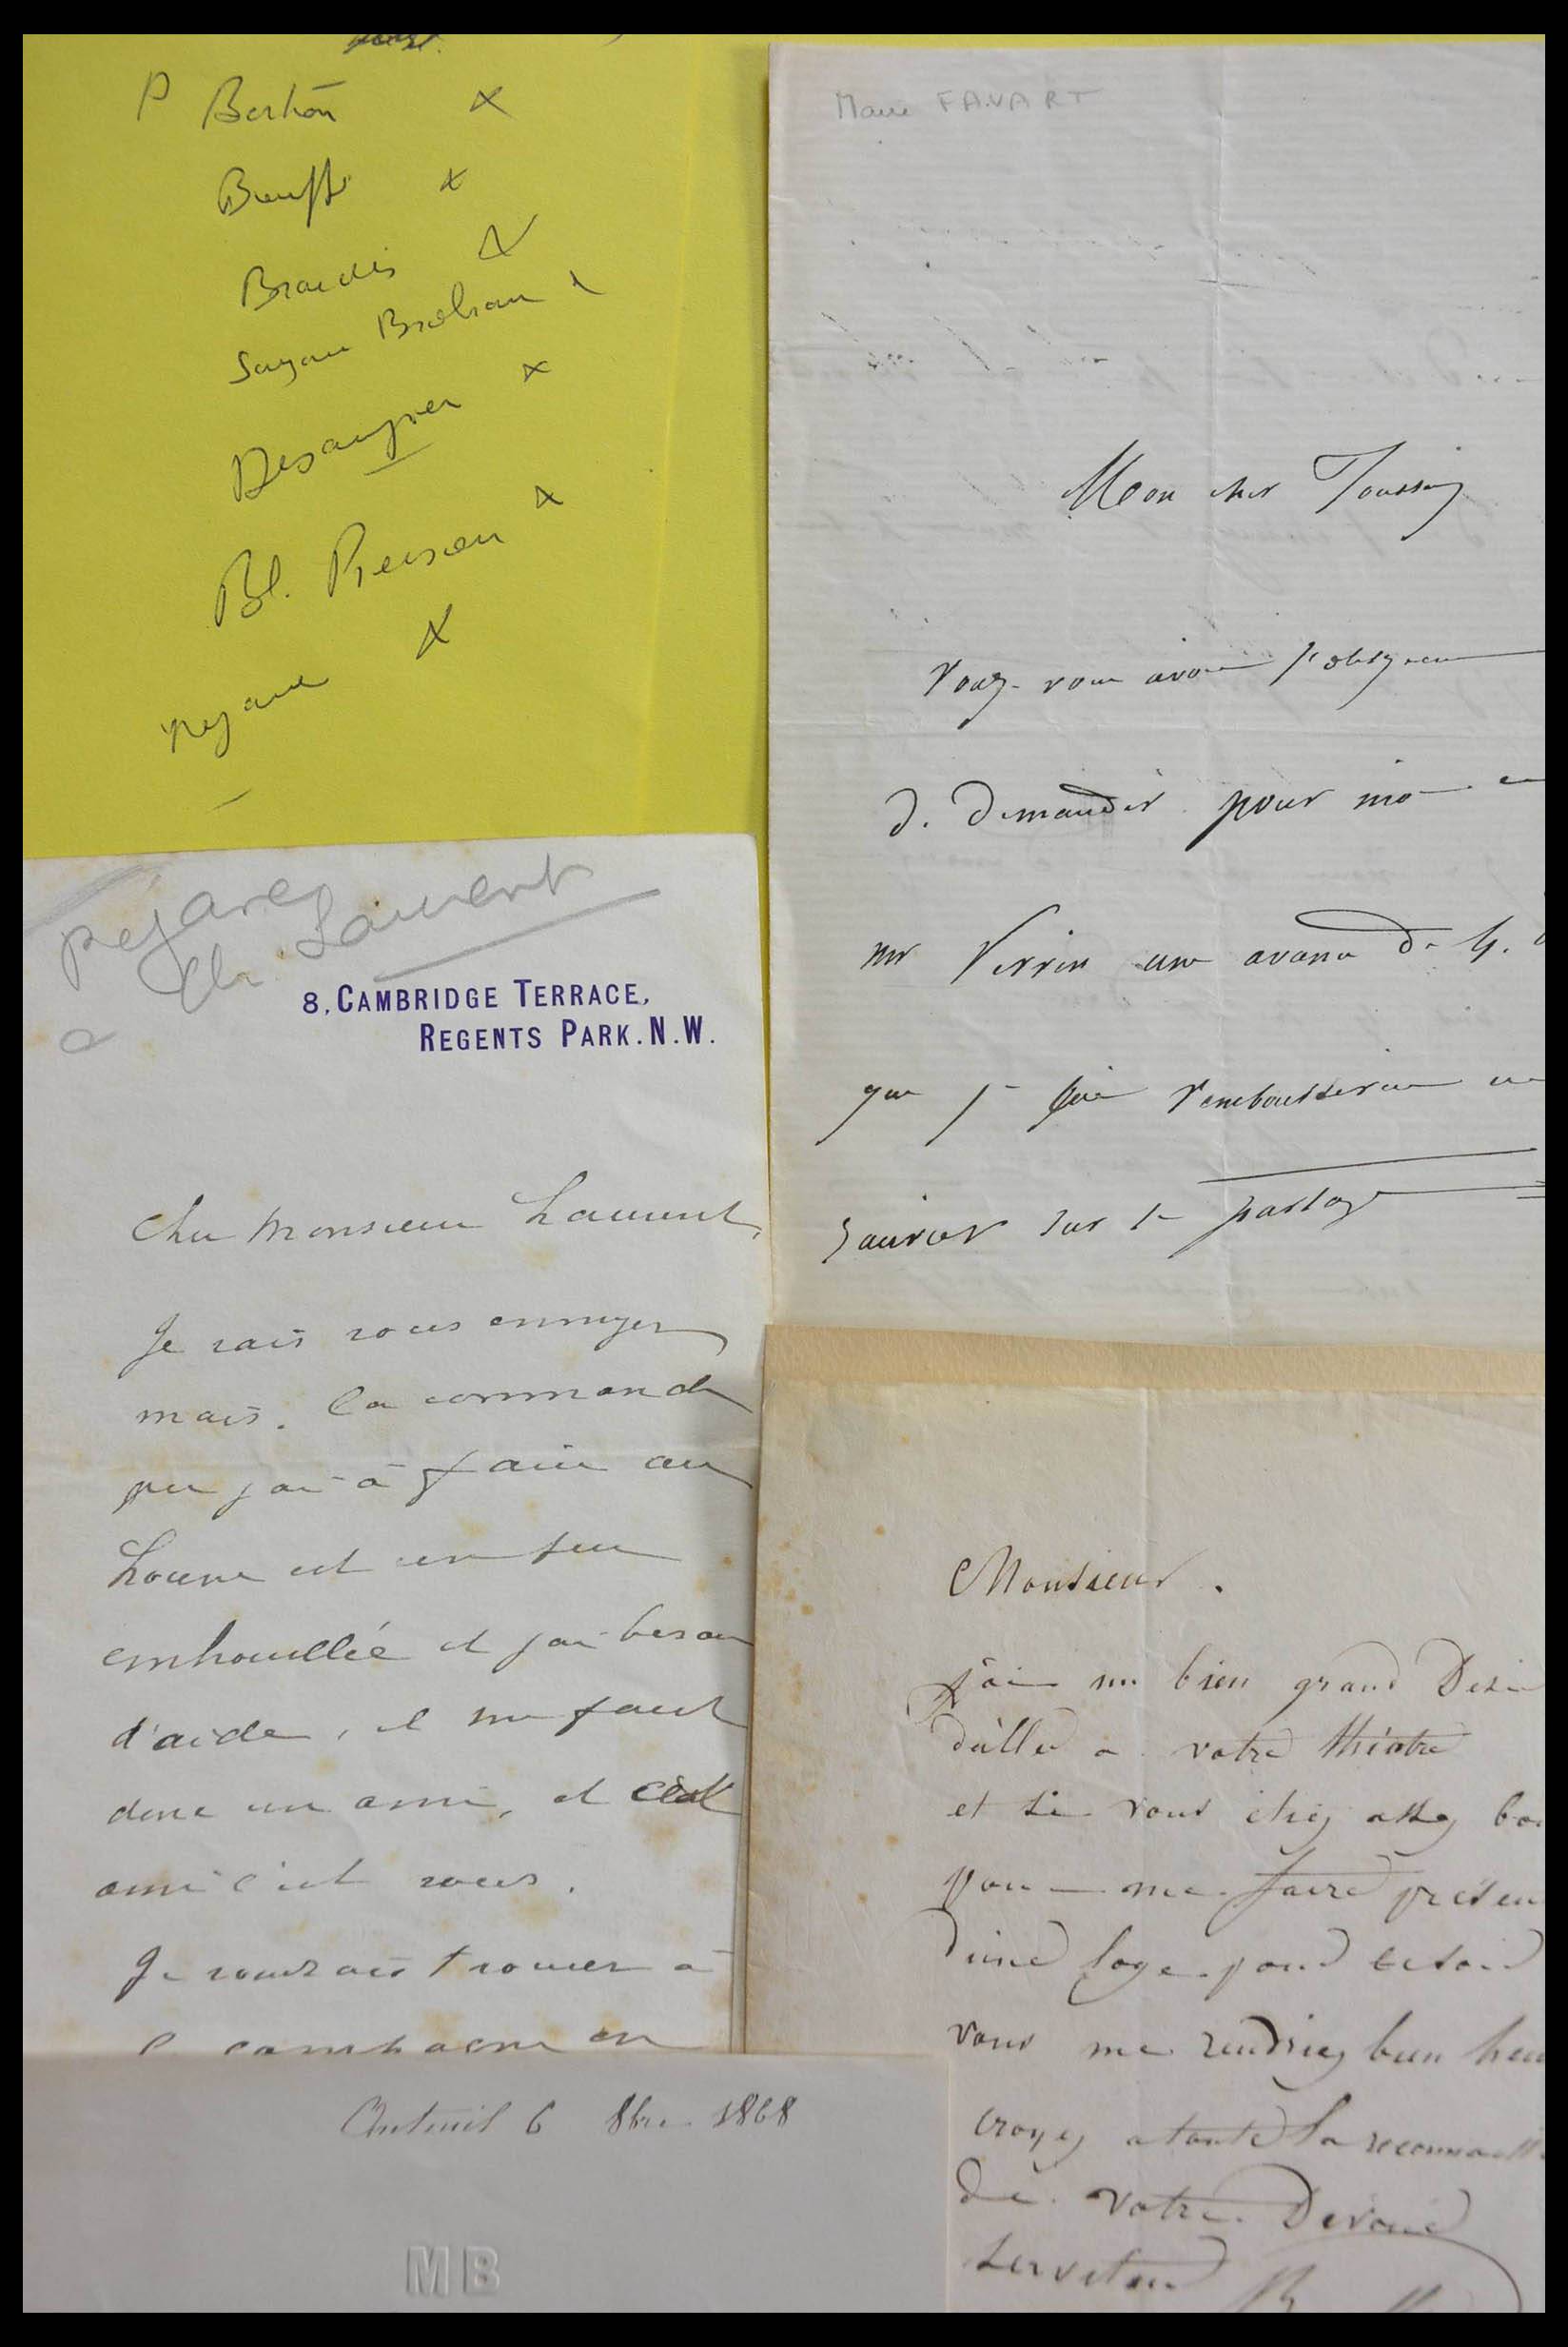 P Berton x
Bouffé x
Brandès x
Sugane Brohan x
Desaugier x
Bl. Pierson x
Rejane x
Marie FAVART
Mon cher Toussaing
Voulez-vous avoir l'obligeance
de demander pour moi
mr Verrin une avance de 4.
que je lui rembourserai
sur le partage
Réjane
à Ch. Laurent
8, CAMBRIDGE TERRACE,
REGENTS PARK. N.W.
Cher Monsieur Laurent,
Je vais vous ennuyer
mais. la commande
que j'ai à faire au
Louvre est un peu
embrouillée et j'ai besoin
d'aide, il me faut
donc un ami, et cet
ami c'est vous.
Je voudrais trouver à
la campagne un
Monsieur.
j'ai un bien grand Desir
d'aller a votre théatre
et si vous etiez assez bon
pour me faire présen
d'une loge pour ce soir
vous me rendriez bien heu
croyez a toute la reconnaiss
de votre Devoué
serviteur
Auteuil 6 8bre 1868
MB